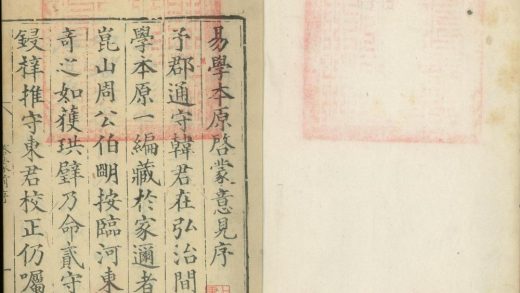 易學本原啓蒙意見序
予郡通守韓君在弘治間
學本原一編藏於家邇者
崑山周公伯明按臨河東
奇之如獲珙璧乃命貳守
鋟梓推守東君校正仍囑